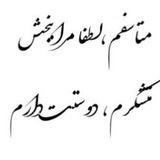 متاسفم ، لطفا مرا ببخش
متشکرم ، دوستت دارم